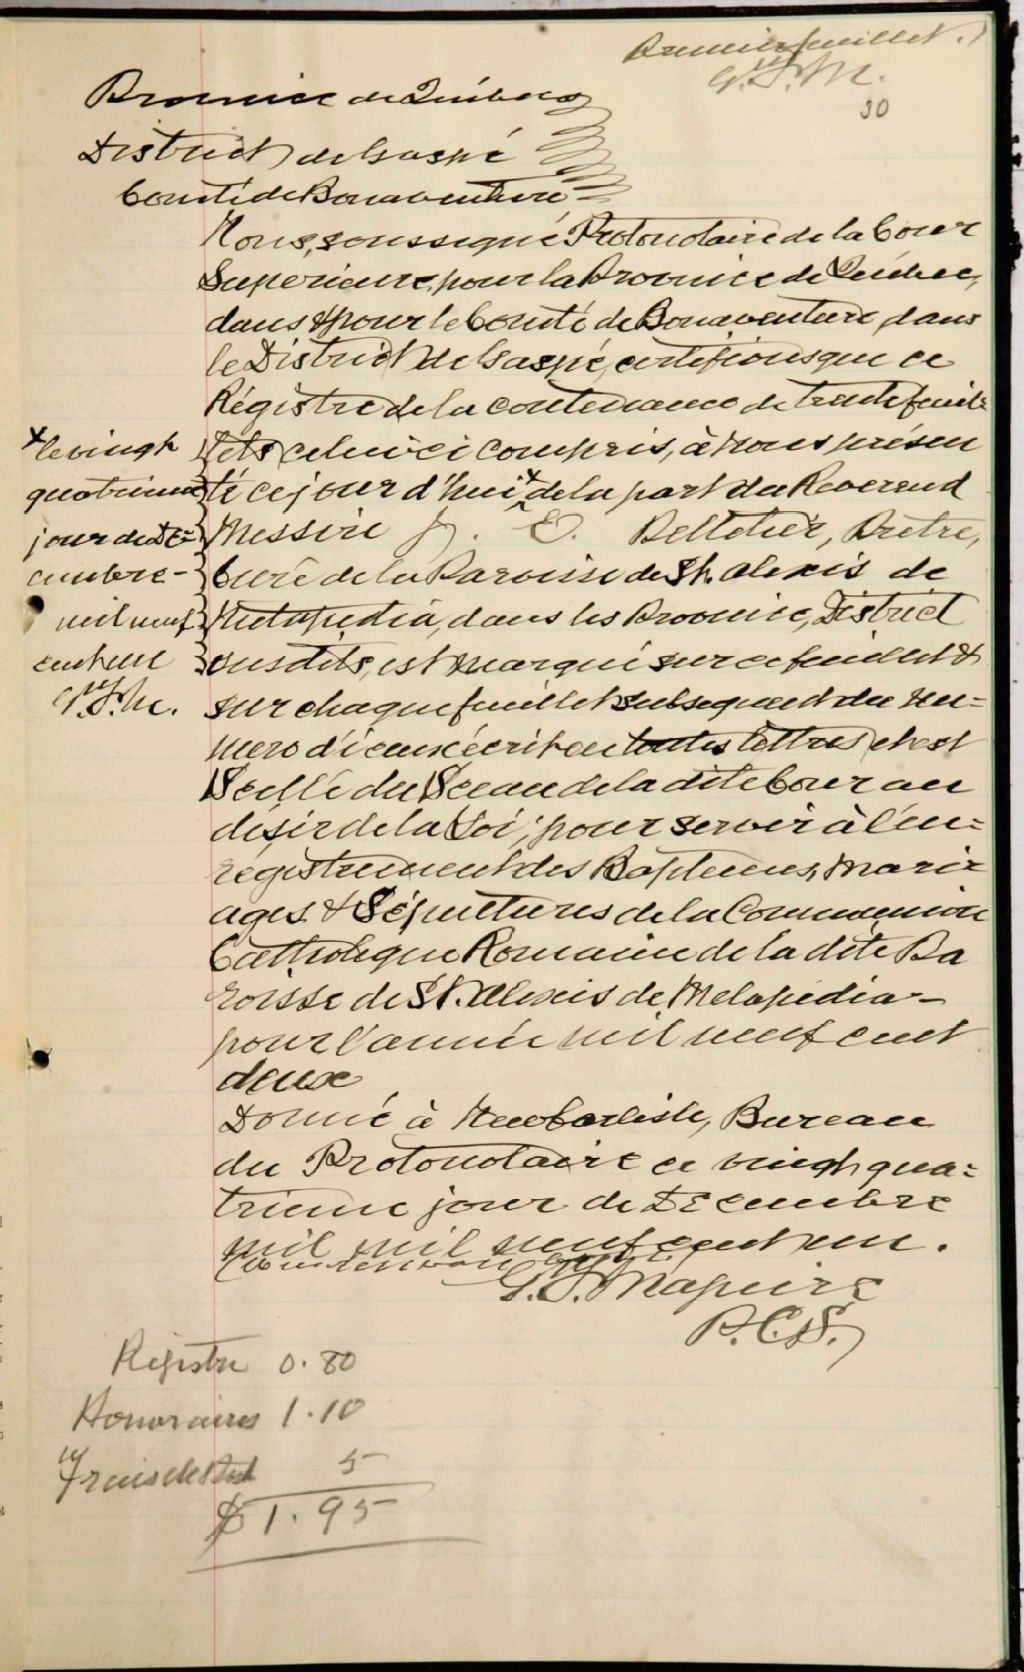 Premier feuillet.
G.J.M.
30
Province de Québec
District de Gaspé
Comté de Bonaventure
Nous, soussigné Protonotaire de la Cour
Superieure, pour la Province de Québec,
dans & pour le Comté de Bonaventure, dans
le District de Gaspé, certifions que ce
Régistre de la contenance de trente feuil-
lets celui ci compris, à nous présen
té ce jour d'hui x de la part du Reverend
Messire J. E. Pelletier, Prêtre,
Curé de la Paroisse de St. Alexis de
Metapedia, dans les Province, District
susdits, est marqué sur ce feuillet &
sur chaque feuillet subsequent du nu=
mero d'iceux écrit en toutes lettres, et est
Scellé du Sceau de la dite Cour au
désir de la Loi, pour servir à l'en=
régistrement des Baptemes, Mari
ages & Sépultures de la Communion
Catholique Romaine de la dite Pa
roisse de St. Alexis de Metapedia-
pour l'année mil neuf cent
deux
Donné à New Carlisle, Bureau
du Protonotaire ce vingt qua=
trieme jour de Décembre
mil mil neuf cent un.
G.J. Maguire
P.C.S.
x le vingt
quatrieme
jour de Dé=
cembre-
mil neuf
cent un
G.J.M.
Régistre 0.80
Honoraires 1.10
Frais de 5
$1.95